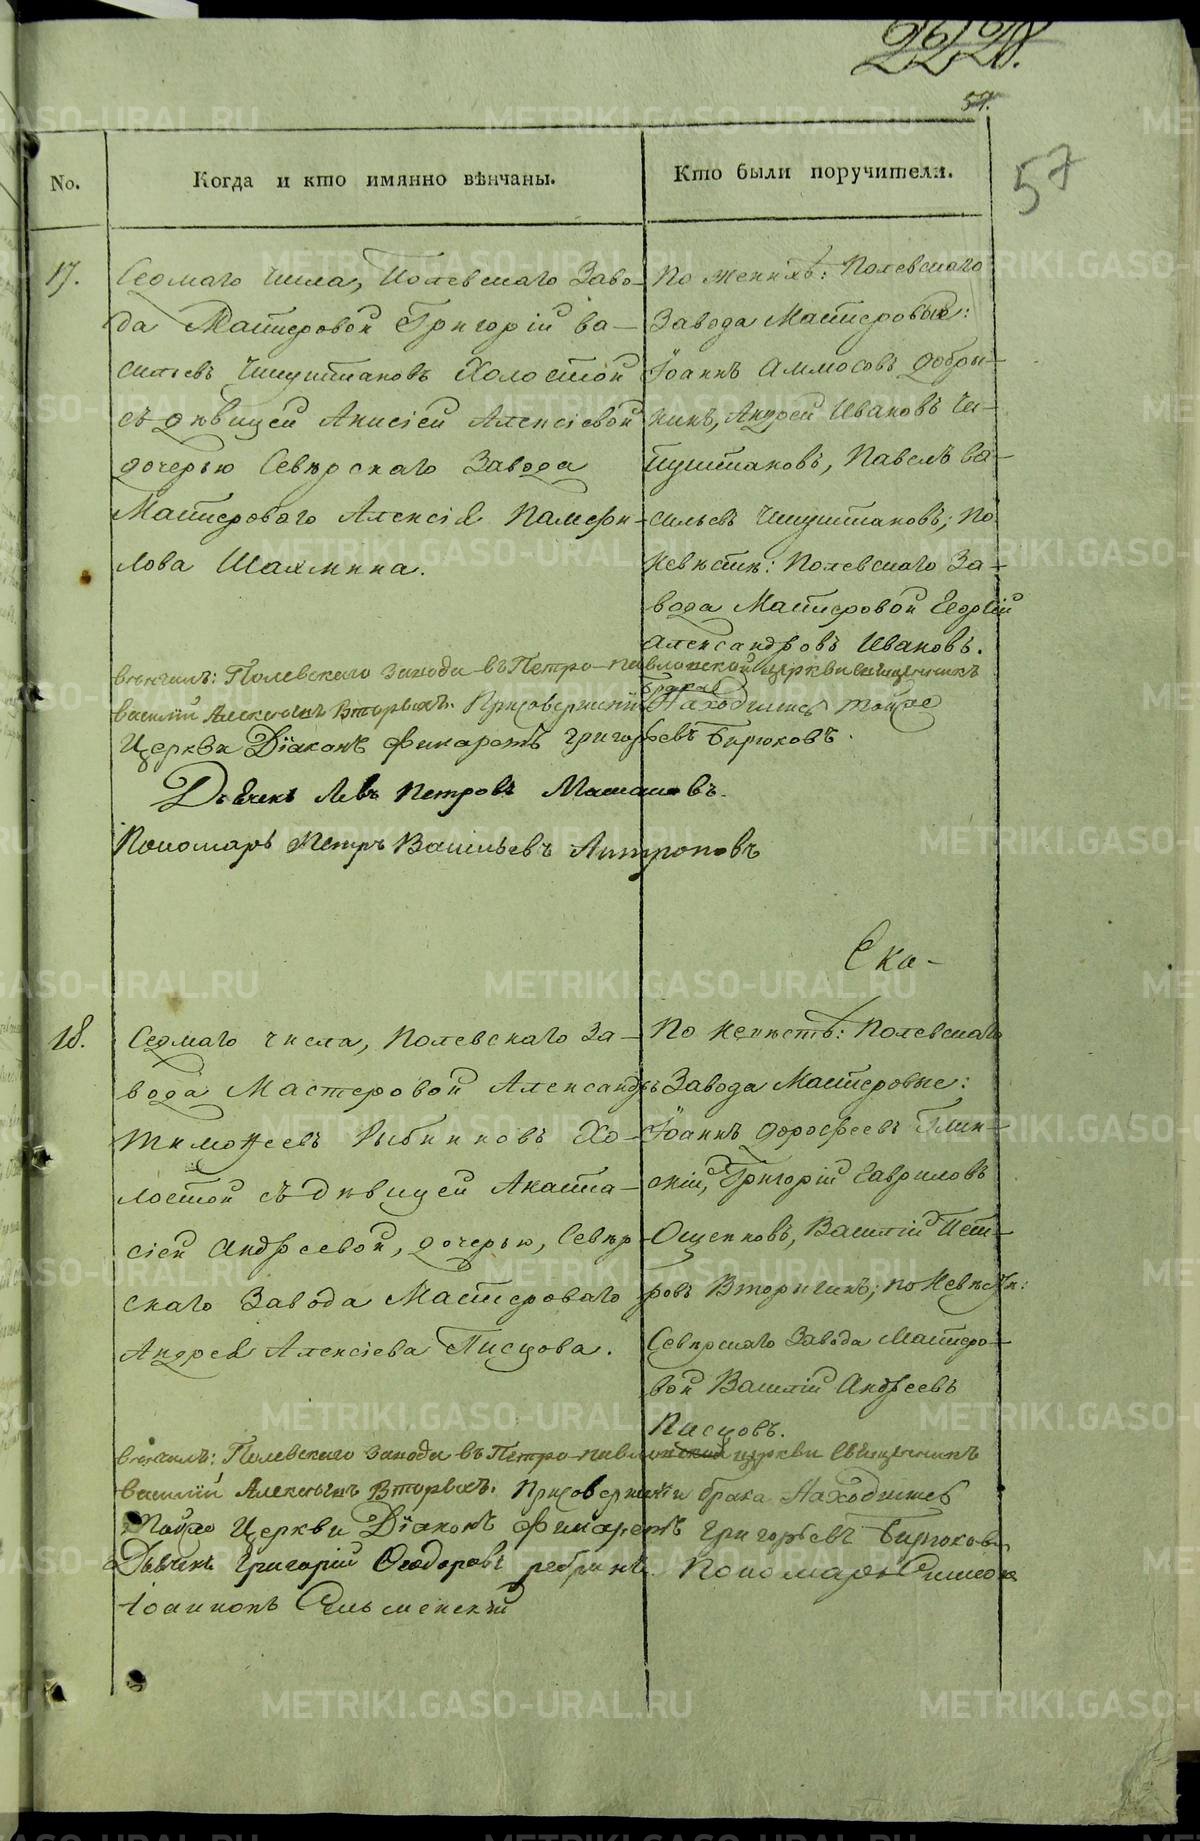 2228.
57.
57
No.
Когда и кто имянно вѣнчаны.
Кто были поручители.
17.
Седмаго числа, Полевскаго Заво-
да Мастеровой Григорій Ва-
сильевъ Чипуштановъ Холостой
съ дѣвицей Анисіей Алексіевой
дочерью Сѣвѣрскаго Завода
Мастероваго Алексія Памфи-
лова Шахмина.
По женихѣ: Полевскаго
Завода Мастеровые:
Іоаннъ Аммосовъ Добры-
нинъ, Андрей Ивановъ Чи-
пуштановъ, Павелъ Ва-
сильевъ Чипуштановъ; По
Невѣстѣ: Полевскаго За-
вода Мастеровой Георгій
Александровъ Ивановъ.
вѣнчалъ: Полевскаго завода въ Петро-павловской церкви священникъ
василій Алексіевъ Вторыхъ. При совершеніи брака Находились тойже
Церкви Діаконъ Филаретъ Григорьевъ Бирюковъ.
Дьячекъ Левъ Петровъ
Пономарь Петръ Васильевъ Антроповъ
Ека-
18.
Седмаго числа, Полевскаго За-
вода Мастеровой Александръ
Тимоѳеевъ Рыбниковъ Хо-
лостой съ дѣвицей Анаста-
сіей Андреевой, дочерью, Сѣвѣр-
скаго Завода Мастероваго
Андрея Алексіева Писцова.
По Невѣстѣ: Полевскаго
Завода Мастеровые:
Іоаннъ Дорофеевъ Глин-
скій, Григорій Гавриловъ
Ощепковъ, Василій Пет-
ровъ Вторыгинъ; по Невѣстѣ:
Сѣвѣрскаго Завода Мастеро-
вой Василій Андреевъ
Писцовъ.
вѣнчалъ: Полевскаго завода въ Петро-павловской церкви Священникъ
василій Алексіевъ Вторыхъ. При совершеніи брака Находились
тойже Церкви Діаконъ Филаретъ Григорьевъ Бирюковъ
Дьячекъ Григорій Ѳеодоровъ Пономарь Симеонъ
Іоанновъ
METRIKI.GASO-URAL.RU